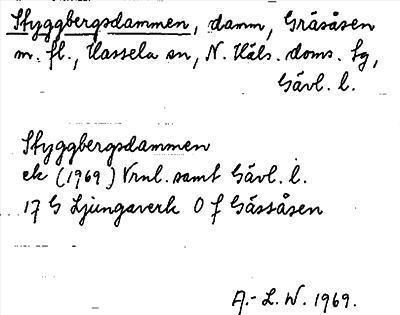 Styggbergsdammen, damm, Gräsåsen
m. fl., Hassela sn, N. Häls. doms. sg,
Gävl. l.
Styggbergsdammen
ek (1969) Vrnl. samt Gävl. l.
17 G Ljungaverk 0 f Gässåsen
A.-L.W. 1969.